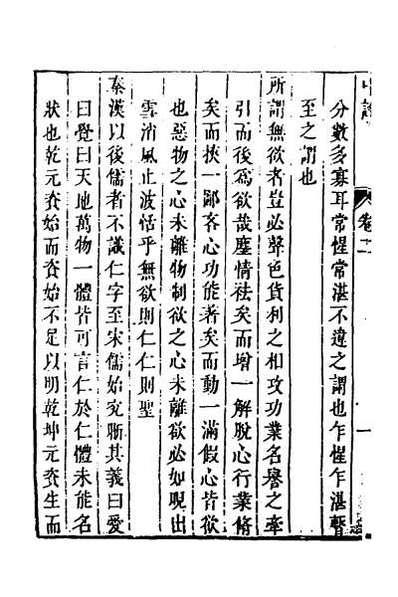 分數多寡耳常惺常湛不違之謂也乍惺乍湛暫
至之謂也
所謂無欲者豈必聲色貨利之相攻功業名譽之牽
引而後爲欲哉塵情袪矣而增一解脫心行業脩
矣而挾一鄙吝心功能著矣而動一滿假心皆欲
也惡物之心未離物制欲之心未離欲必如晛出
雪消風止波恬乎無欲則仁仁則聖
秦漢以後儒者不識仁字至宋儒始究斷其義曰愛
曰覺曰天地萬物一體皆可言仁於仁體未能名
狀也乾元資始而資始不足以明乾坤元資生而
卷二
一